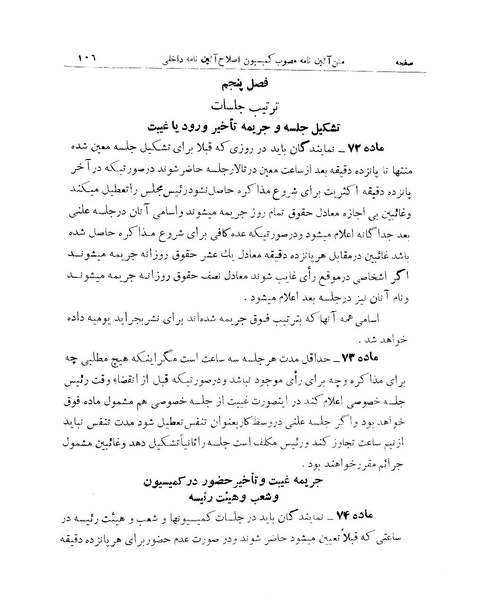 صفحه متن آئین نامه مصوب کمیسیون اصلاح آئین نامه داخلی ۱۰۶
فصل پنجم
ترتیب جلسات
تشکیل جلسه و جریمه تأخیر ورود یا غیبت
ماده ۷۲ ــ نمایندگان باید در روزی که قبلا برای تشکیل جلسه معین شده
منتها تا پانزده دقیقه بعد از ساعت معین در تالار جلسه حاضر شوند در صورتیکه در آخر
پانزده دقیقه اکثریت برای شروع مذاکره حاصل نشود رئیس مجلس را تعطیل میکند
و غائبین بی اجازه معادل حقوق تمام روز جریمه میشوند و اسامی آنان در جلسه علنی
بعد جداگانه اعلام میشود و در صورتیکه عده کافی برای شروع مذاکره حاصل شده
باشد غائبین در مقابل هر پانزده دقیقه معادل یك عشر حقوق روزانه جریمه میشوند
اگر اشخاصی در موقع رأی غایب شوند معادل نصف حقوق روزانه جریمه میشوند
و نام آنان نیز در جلسه بعد اعلام میشود .
اسامی همه آنها که بترتیب فوق جریمه شده‌اند برای نشر بجراید یومیه داده
خواهد شد .
ماده ۷۳ ــ حداقل مدت هر جلسه سه ساعت است مگر اینکه هیچ مطلبی چه
برای مذاکره و چه برای رأی موجود نباشد و در صورتیکه قبل از انقضاء وقت رئیس
جلسه خصوصی اعلام کند در اینصورت غیبت از جلسه خصوصی هم مشمول ماده فوق
خواهد بود و اگر جلسه علنی در وسط کار بعنوان تنفس تعطیل شود مدت تنفس نباید
از نیم ساعت تجاوز کند و رئیس مکلف است جلسه را ثانیاً تشکیل دهد و غائبین مشمول
جرائم مقرر خواهند بود .
جریمه غیبت و تأخیر حضور در کمیسیون
و شعب و هیئت رئیسه
ماده ۷۴ ــ نمایندگان باید در جلسات کمیسیونها و شعب و هیئت رئیسه در
ساعتی که قبلاً تعیین میشود حاضر شوند و در صورت عدم حضور برای هر پانزده دقیقه